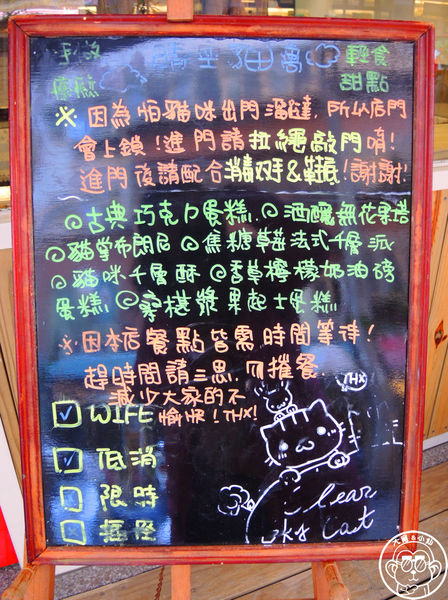 手作
療癒
貓
輕食
甜點
※因為怕貓咪出門溜躂,所以店門
會上鎖!進門請拉繩敲門唷!
進門後請配合消毒手&鞋!謝謝!
◎古典巧克力蛋糕.◎酒釀無花果塔
◎貓掌布朗尼◎焦糖草莓法式千層派
◎貓咪千層酥◎香草檸檬奶油磅
蛋糕.◎桑椹漿果起士蛋糕
※因本店餐點皆需時間等待!
趕時間請三思.勿催餐.
減少大家的不
愉快!THX!
THX
☑ WIFE
☑ 低消
☐ 限時
☐ 插座
Clear
Sky Cat